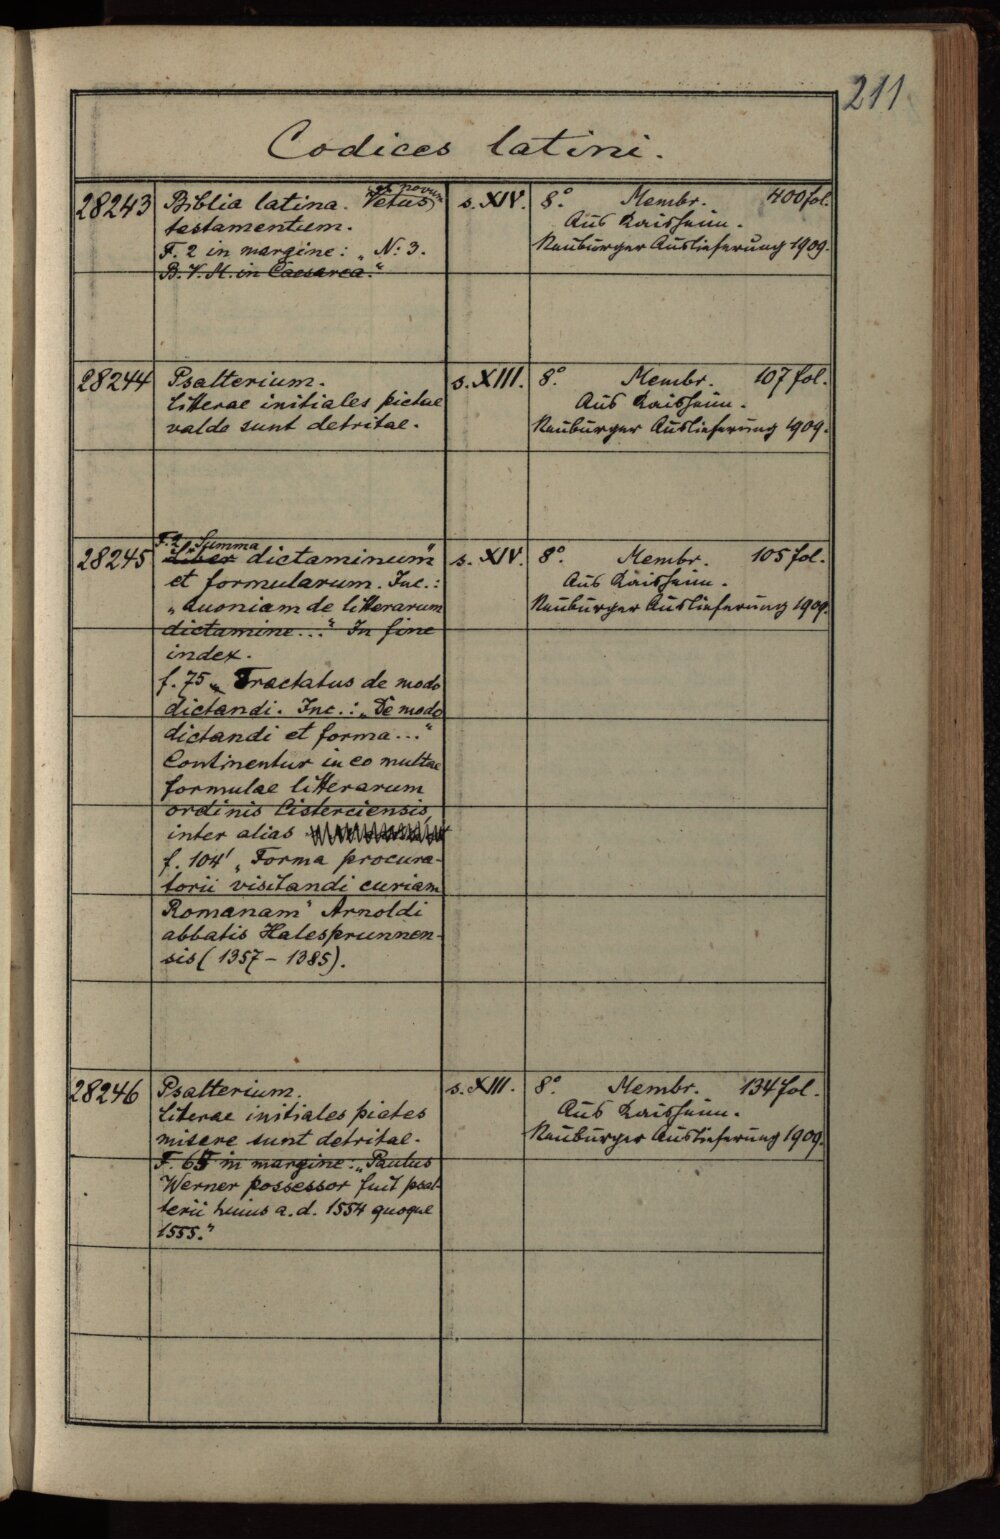 211
Codices latini.
28243 Biblia latina. Vetus et novum s. XIV. 8° Membr. 400 fol.
testamentum. Aus Kaisheim.
F. 2 in margine: „N: 3. Neuburger Auslieferung 1909.
B. V. M. in Caesarea."
28244 Psalterium. s. XIII. 8° Membr. 107 fol.
Litterae initiales pictae Aus Kaisheim.
valde sunt detritae. Neuburger Auslieferung 1909.
F. 2 „Summa
28245 Liber dictaminum" s. XIV. 8° Membr. 105 fol.
et formularum. Inc.: Aus Kaisheim.
„Quoniam de litterarum Neuburger Auslieferung 1909.
dictamine..." In fine
index.
f. 75 „Tractatus de modo
dictandi. Inc.: „De modo
dictandi et forma..."
Continentur in eo multae
formulae litterarum
ordinis Cisterciensis,
inter alias
f. 104' „Forma procura-
torii visitandi curiam
Romanam" Arnoldi
abbatis Halesprunnen-
sis (1357 – 1385).
28246 Psalterium. s. XIII. 8° Membr. 134 fol.
Literae initiales pictes Aus Kaisheim.
misere sunt detritae. Neuburger Auslieferung 1909.
F. 65 in margine: „Paulus
Werner possessor fuit psal-
terii huius a. d. 1554 quoque
1555."